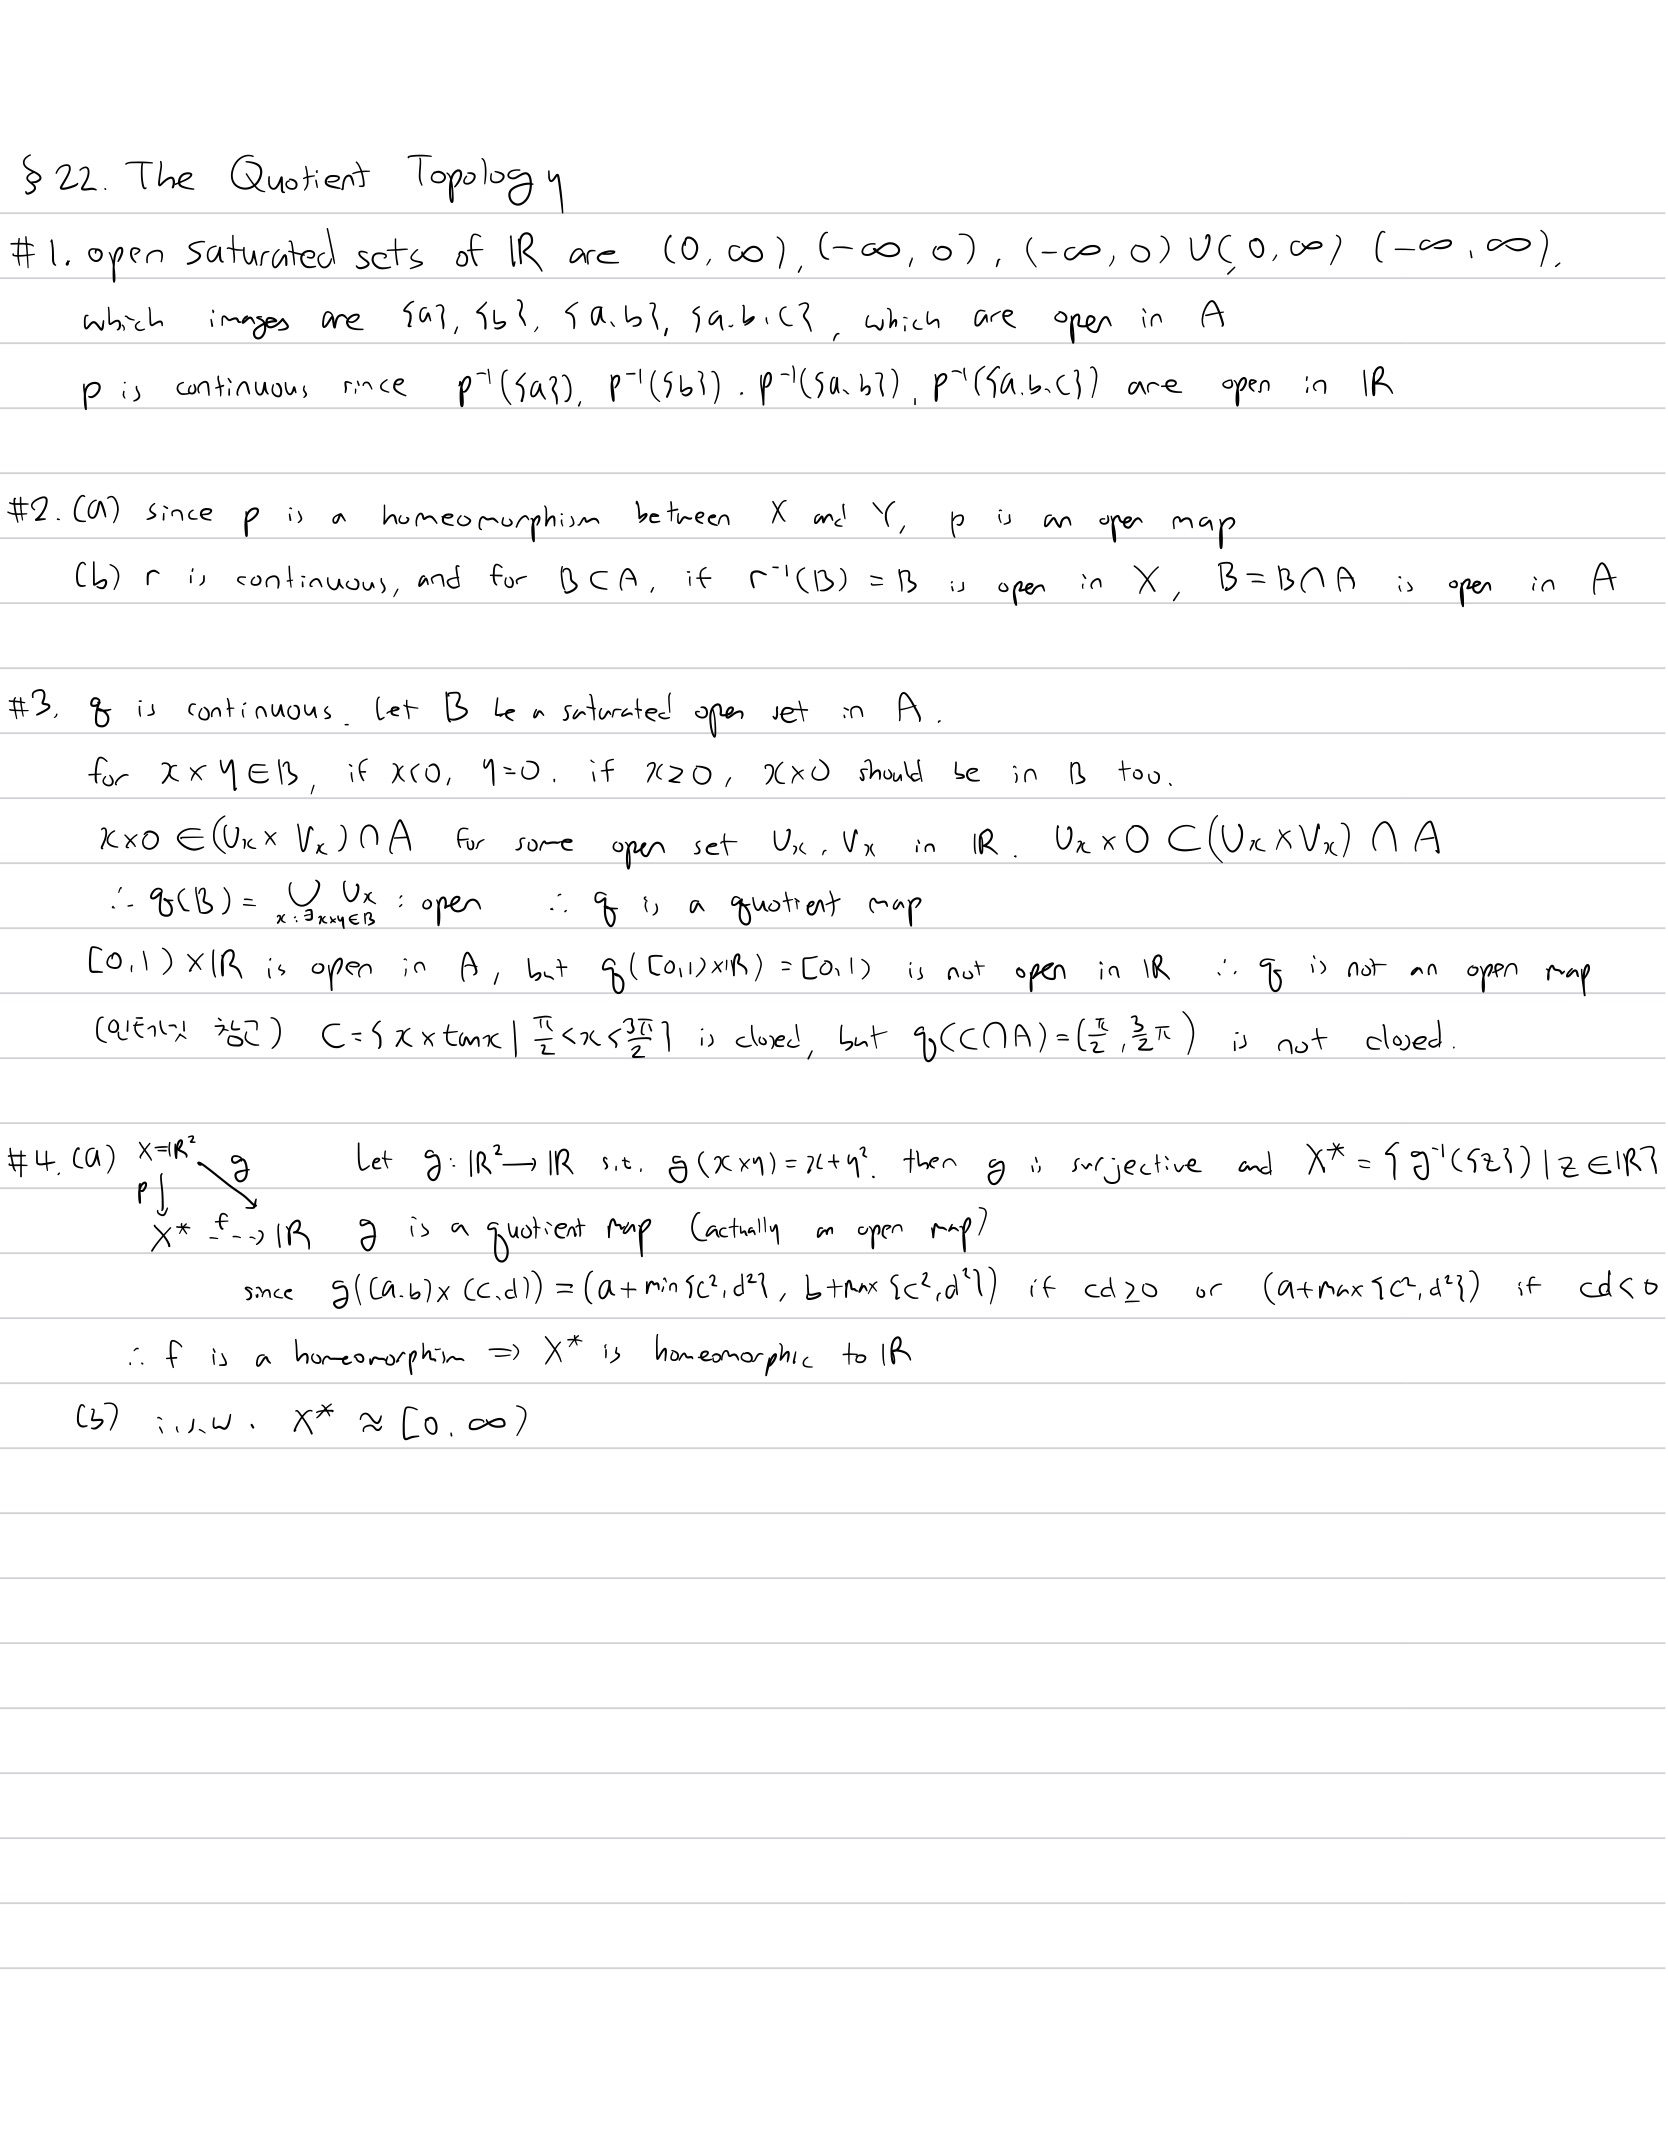 § 22. The Quotient Topology
#1. open saturated sets of ℝ are (0, ∞), (-∞, 0), (-∞, 0) ∪ (0, ∞) (-∞, ∞),
which images are {a}, {b}, {a,b}, {a.b.c}, which are open in A
p is continuous since p⁻¹({a}), p⁻¹({b}). p⁻¹({a.b}), p⁻¹({a.b.c}) are open in ℝ
#2. (a) since p is a homeomorphism between X and Y, p is an open map
(b) r is continuous, and for B⊂A, if r⁻¹(B) = B is open in X, B = B∩A is open in A
#3. q is continuous. Let B be a saturated open set in A.
for x×y∈B, if x<0, y=0. if x≥0, x×0 should be in B too.
x×0 ∈ (Uₓ × Vₓ) ∩ A for some open set Uₓ, Vₓ in ℝ. Uₓ×0 ⊂ (Uₓ×Vₓ) ∩ A
∴ q(B) = ∪ Uₓ : open ∴ q is a quotient map
x:∃x×y∈B
[0,1)×ℝ is open in A, but q([0,1)×ℝ) = [0,1) is not open in ℝ ∴ q is not an open map
C={x×tanx | π/2<x<3π/2} is closed, but q(C∩A)=(π/2, 3/2π) is not closed.
#4. (a) X=ℝ² g Let g: ℝ²→ℝ s.t. g(x×y) = x+y². then g is surjective and X* = {g⁻¹({z}) | z∈ℝ}
p↓
X* f⇢ ℝ g is a quotient map (actually an open map)
since g((a.b)×(c.d)) = (a+min{c²,d²}, b+max{c²,d²}) if cd≥0 or (a+max{c²,d²}) if cd<0
∴ f is a homeomorphism ⇒ X* is homeomorphic to ℝ
(b) i.s.w. X* ≈ [0. ∞)